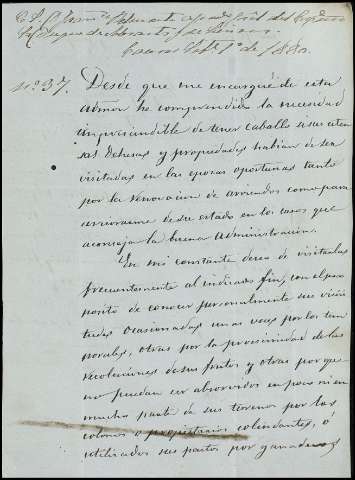 Casares Feb.º 1º de 1880.
Nº 37.
Desde que me encargué de esta
admon he comprendido la necesidad
imprescindible de tener caballo si sus esten
sas dehesas y propiedades habian de ser
visitadas en las epocas oportunas tanto
por la renovacion de arriendos como para
de su estado en los casos que
aconseja la buena administracion.
En mi constante deseo de visitarlas
frecuentemente al indicado fin, con el pro
posito de conocer personalmente sus
tudes ocasionadas unas veces por los tem
porales, otras por la procsimidad de las
recolecciones de sus frutos y otras porque
no puedan ser absorvidos en poco ni en
mucha parte de sus terrenos por los
colonos o propietarios colindantes, ó
utilizados sus pastos por ganaderos